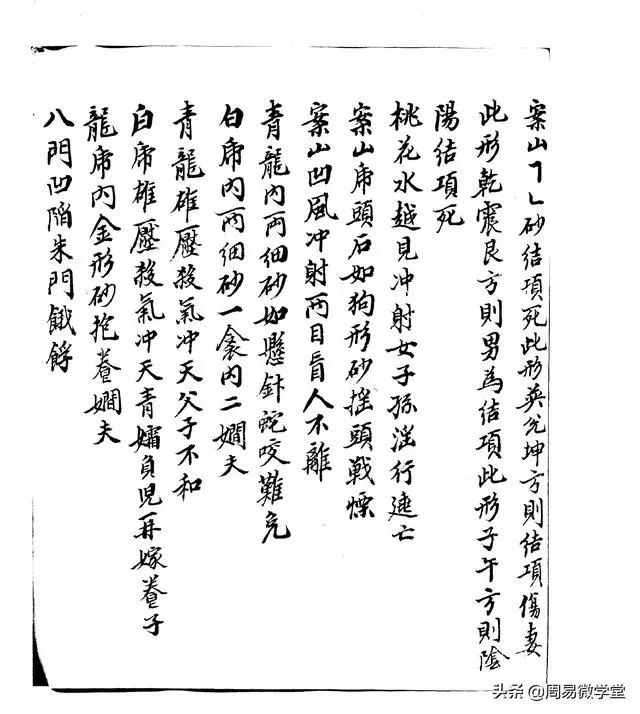 案山㇕㇄砂結項死此形巽兌坤方則結項傷妻
此形乾震艮方則男為結項此形子午方則陰
陽結項死
桃花水越見冲射女子孫淫行速亡
案山虎頭石如狗形砂摇頭戦慄
案山凹風冲射两目盲人不離
青龍內両细砂如懸針蛇咬難免
白虎內两细砂一衾內二嫺夫
青龍雄壓殺氣冲天父子不和
白虎雄壓殺氣冲天青孀負児再嫁養子
龍虎內金形砂抱養嫺夫
八門凹陷朱門餓殍
头条 @周易微学堂